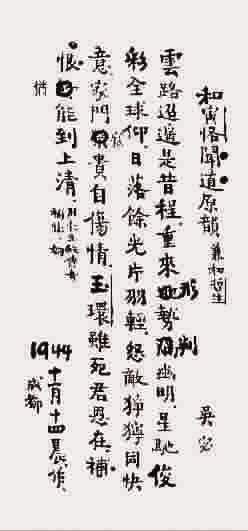 和寅恪聞道原韻 兼和哲生
吳宓
雲路迢遞是昔程,重來形勢判幽明.星馳俊
彩全球仰.日落餘光片羽輕.怨敵猙獰同快
意,家門貴自傷情.玉環雖死君恩在,補
恨猶能到上清.
1944 十二月十四晨作,
成都